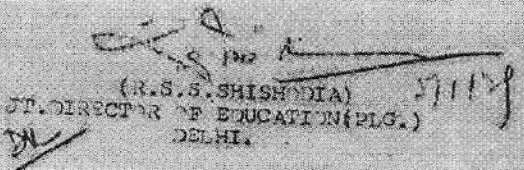 (R.S.S.SHISHODIA)
JT.DIRECTOR OF EDUCATION(PLG.)
DELHI.